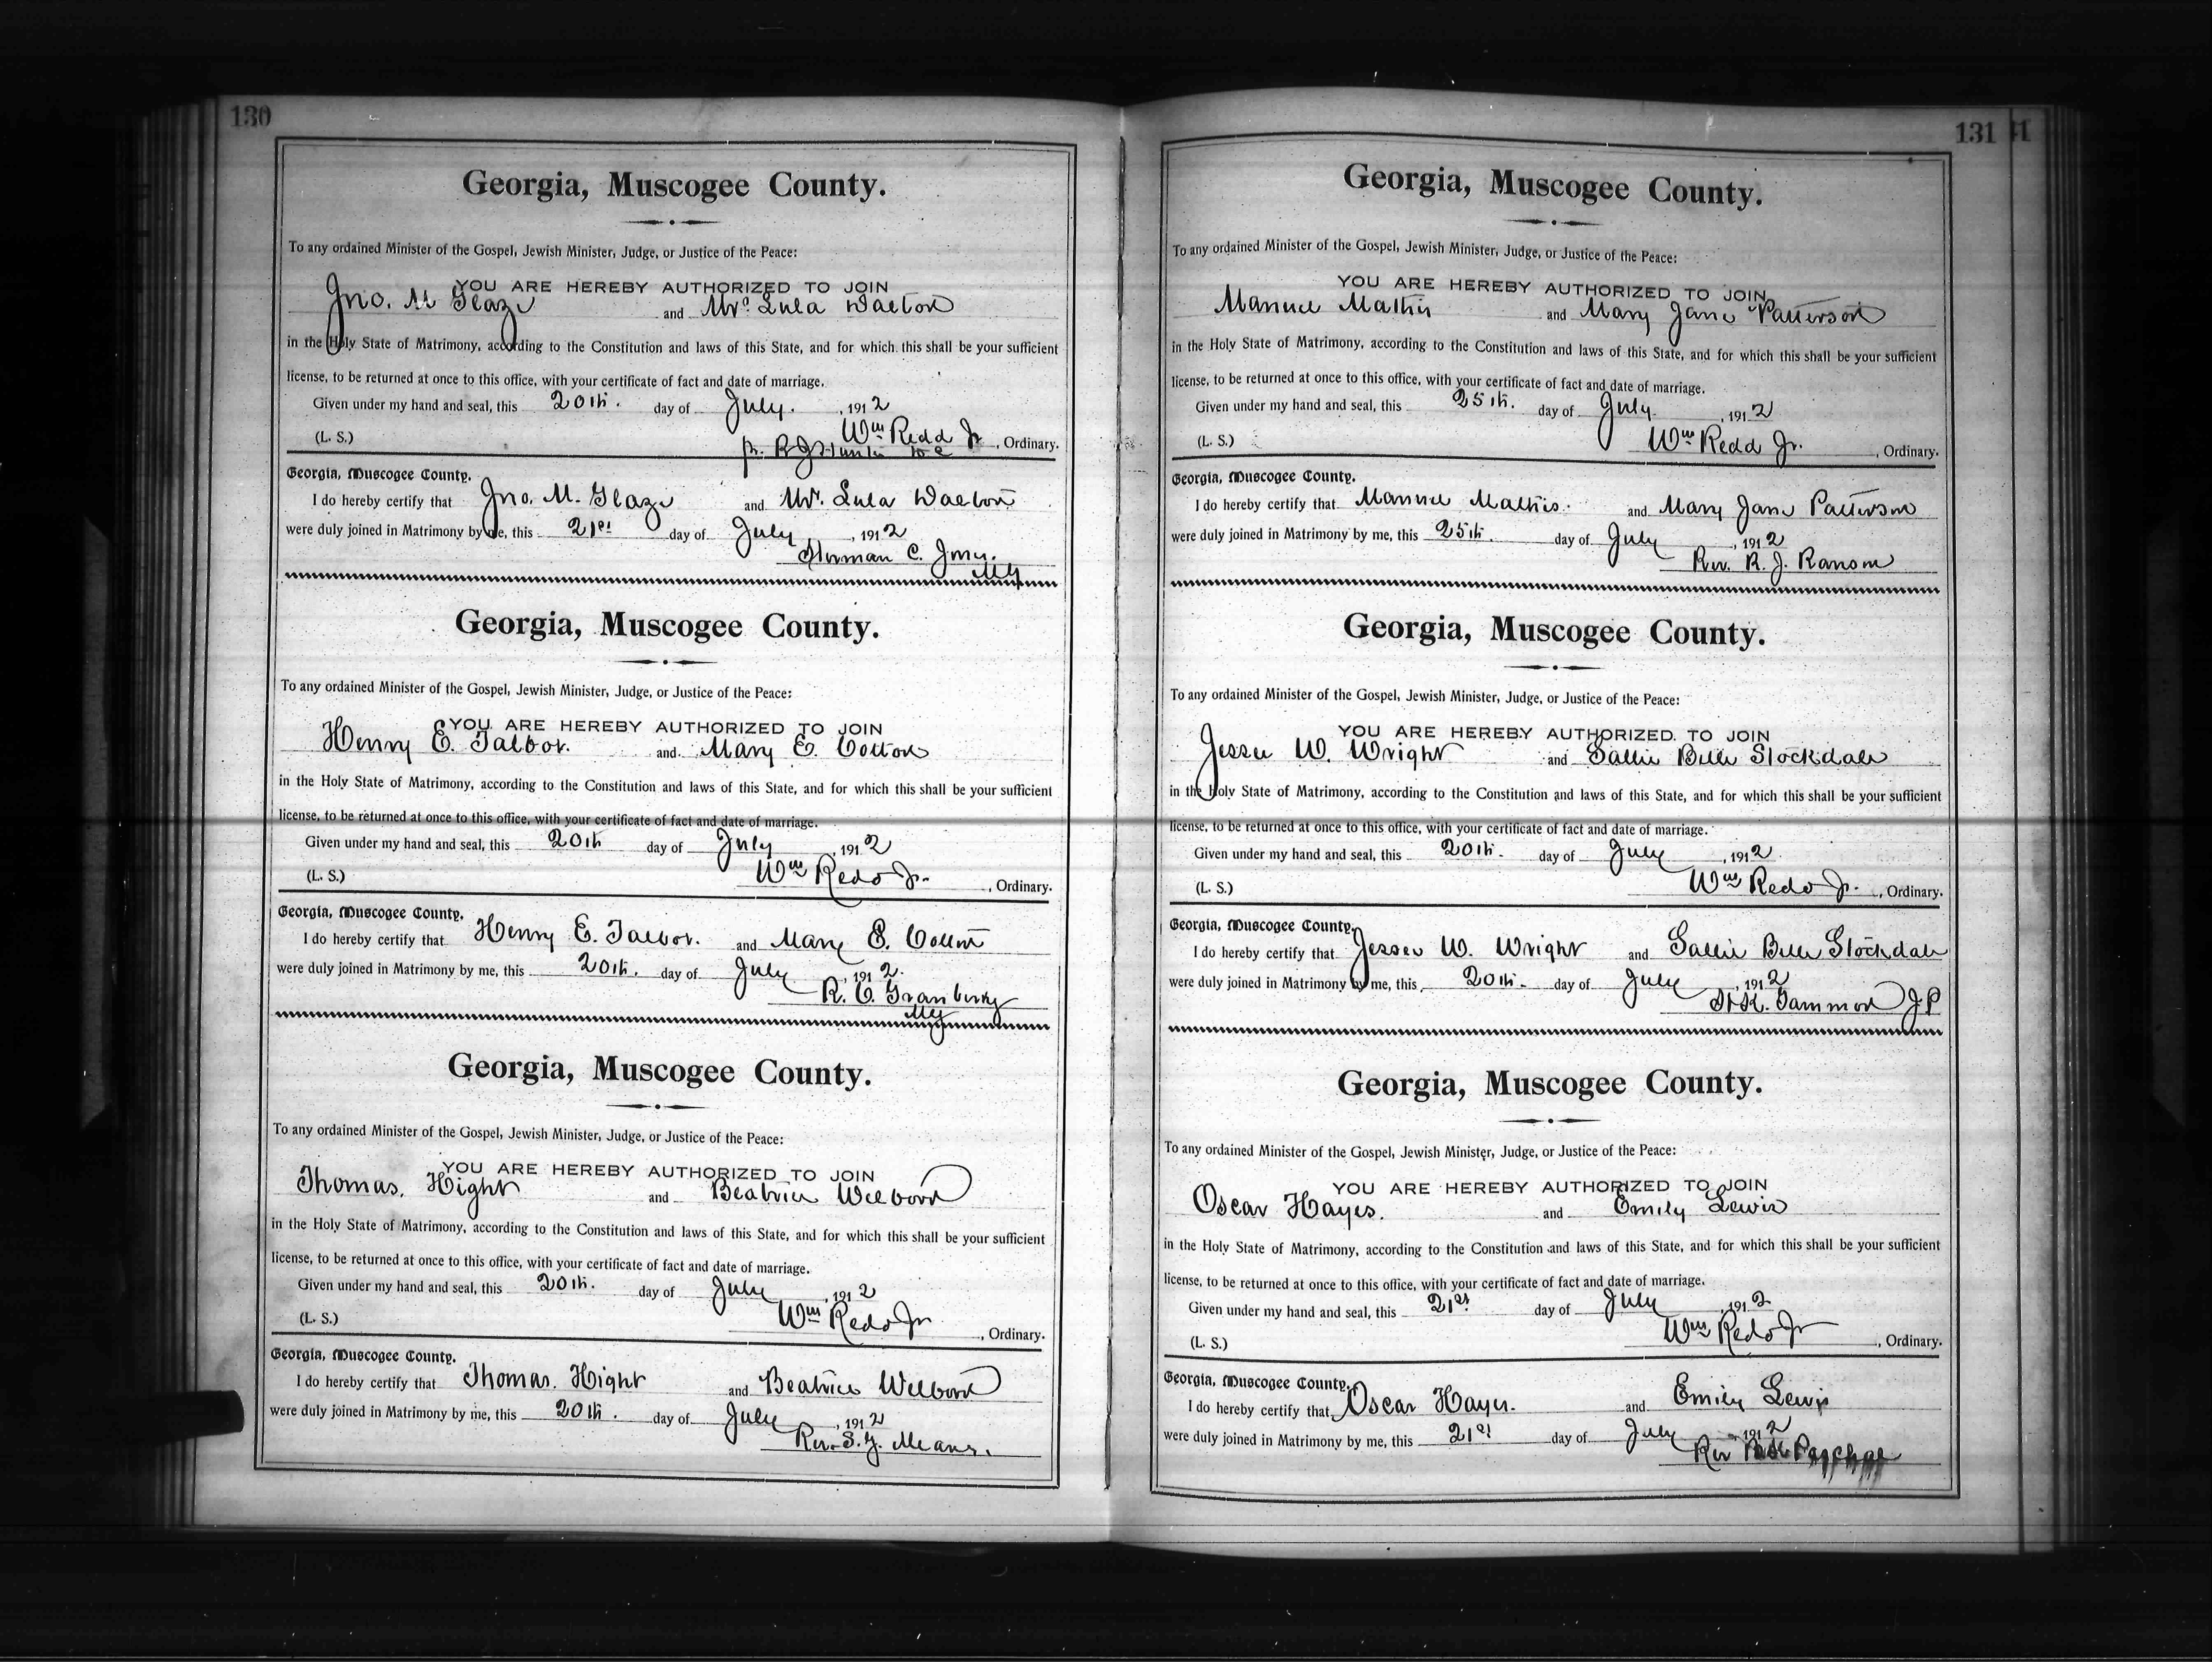 130
Georgia, Muscogee County.
To any ordained Minister of the Gospel, Jewish Minister, Judge, or Justice of the Peace:
YOU ARE HEREBY AUTHORIZED TO JOIN
Jno. M Glaze and Mrs. Lula Walton
in the Holy State of Matrimony, according to the Constitution and laws of this State, and for which this shall be your sufficient
license, to be returned at once to this office, with your certificate of fact and date of marriage.
Given under my hand and seal, this 20th. day of July. , 1912
(L. S.) Wm Redd Jr , Ordinary.
Georgia, Muscogee County.
I do hereby certify that Jno. M. Glaze and Mrs. Lula Walton
were duly joined in Matrimony by me, this 21st day of July , 1912
C.
MG
Georgia, Muscogee County.
To any ordained Minister of the Gospel, Jewish Minister, Judge, or Justice of the Peace:
YOU ARE HEREBY AUTHORIZED TO JOIN
Henry E. Talbot. and Mary E. Cotton
in the Holy State of Matrimony, according to the Constitution and laws of this State, and for which this shall be your sufficient
license, to be returned at once to this office, with your certificate of fact and date of marriage.
Given under my hand and seal, this 20th day of July , 1912
(L. S.) Wm Redd Jr. , Ordinary.
Georgia, Muscogee County.
I do hereby certify that Henry E. Talbot. and Mary E. Cotton
were duly joined in Matrimony by me, this 20th. day of July , 1912.
R. C. Granberry
MG
Georgia, Muscogee County.
To any ordained Minister of the Gospel, Jewish Minister, Judge, or Justice of the Peace:
YOU ARE HEREBY AUTHORIZED TO JOIN
Thomas. Hight and Beatrice Welborn
in the Holy State of Matrimony, according to the Constitution and laws of this State, and for which this shall be your sufficient
license, to be returned at once to this office, with your certificate of fact and date of marriage.
Given under my hand and seal, this 20th. day of July , 1912
(L. S.) Wm Redd Jr , Ordinary.
Georgia, Muscogee County.
I do hereby certify that Thomas. Hight and Beatrice Welborn
were duly joined in Matrimony by me, this 20th. day of July , 1912
Rev. S. Z. Means.
131
Georgia, Muscogee County.
To any ordained Minister of the Gospel, Jewish Minister, Judge, or Justice of the Peace:
YOU ARE HEREBY AUTHORIZED TO JOIN
Manuel Mathis and Mary Jane Patterson
in the Holy State of Matrimony, according to the Constitution and laws of this State, and for which this shall be your sufficient
license, to be returned at once to this office, with your certificate of fact and date of marriage.
Given under my hand and seal, this 25th. day of July , 1912
(L. S.) Wm Redd Jr. , Ordinary.
Georgia, Muscogee County.
I do hereby certify that Manuel Mathis. and Mary Jane Patterson
were duly joined in Matrimony by me, this 25th. day of July , 1912
Rev. R. J. Ransom
Georgia, Muscogee County.
To any ordained Minister of the Gospel, Jewish Minister, Judge, or Justice of the Peace:
YOU ARE HEREBY AUTHORIZED TO JOIN
Jesse W. Wright and Sallie Belle Stockdale
in the Holy State of Matrimony, according to the Constitution and laws of this State, and for which this shall be your sufficient
license, to be returned at once to this office, with your certificate of fact and date of marriage.
Given under my hand and seal, this 20th. day of July , 1912
(L. S.) Wm Redd Jr. , Ordinary.
Georgia, Muscogee County.
I do hereby certify that Jesse W. Wright and Sallie Belle Stockdale
were duly joined in Matrimony by me, this 20th. day of July , 1912
Gammon J P
Georgia, Muscogee County.
To any ordained Minister of the Gospel, Jewish Minister, Judge, or Justice of the Peace:
YOU ARE HEREBY AUTHORIZED TO JOIN
Oscar Hayes. and Emily Lewis
in the Holy State of Matrimony, according to the Constitution and laws of this State, and for which this shall be your sufficient
license, to be returned at once to this office, with your certificate of fact and date of marriage.
Given under my hand and seal, this 21st day of July , 1912
(L. S.) Wm Redd Jr , Ordinary.
Georgia, Muscogee County.
I do hereby certify that Oscar Hayes. and Emily Lewis
were duly joined in Matrimony by me, this 21st day of July , 1912
Rev